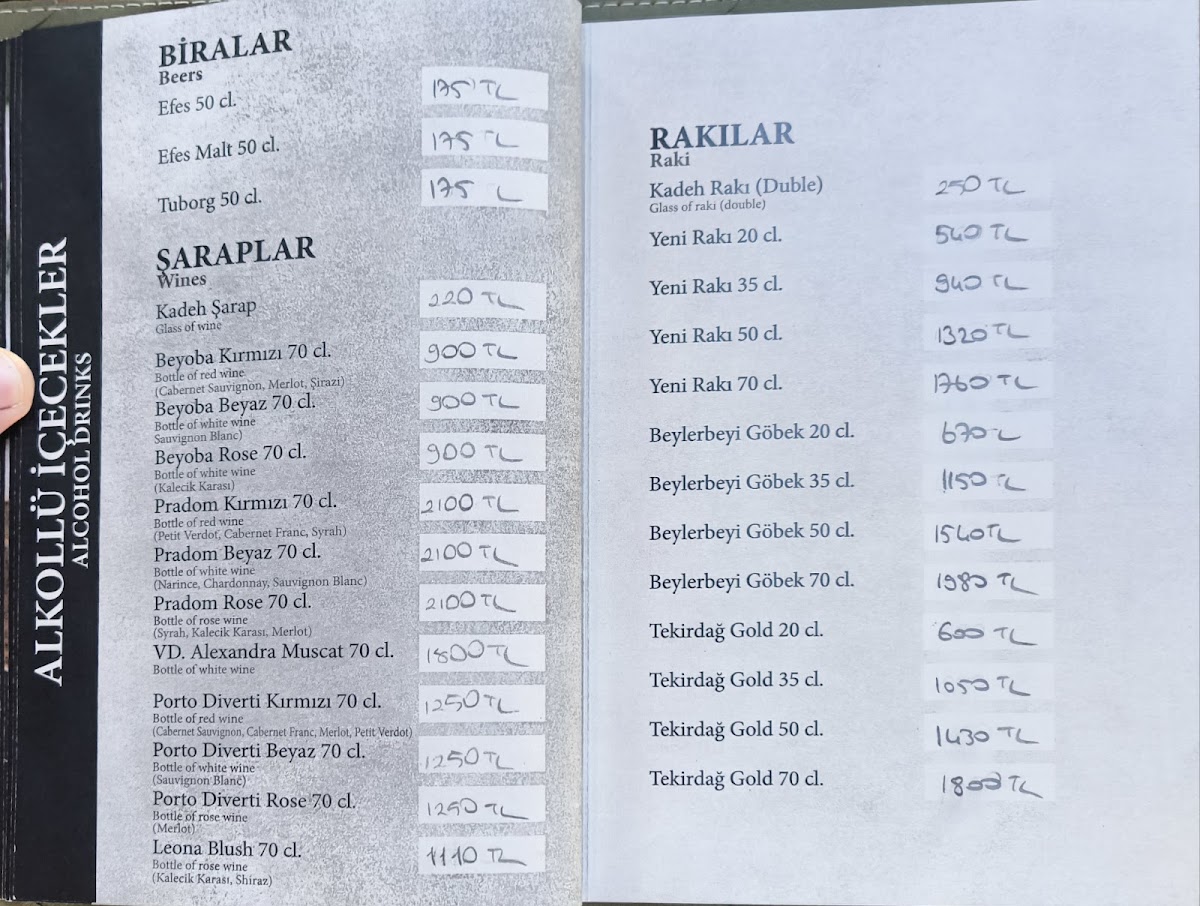 ALKOLLÜ İÇECEKLER
ALCOHOL DRINKS
BİRALAR
Beers
Efes 50 cl. 175 TL
Efes Malt 50 cl. 175 TL
Tuborg 50 cl. 175 L
ŞARAPLAR
Wines
Kadeh Şarap 220 TL
Glass of wine
Beyoba Kırmızı 70 cl. 900 TL
Bottle of red wine
(Cabernet Sauvignon, Merlot, Şirazi)
Beyoba Beyaz 70 cl. 900 TL
Bottle of white wine
Sauvignon Blanc)
Beyoba Rose 70 cl. 900 TL
Bottle of white wine
(Kalecik Karası)
Pradom Kırmızı 70 cl. 2100 TL
Bottle of red wine
(Petit Verdot, Cabernet Franc, Syrah)
Pradom Beyaz 70 cl. 2100 TL
Bottle of white wine
(Narince, Chardonnay, Sauvignon Blanc)
Pradom Rose 70 cl. 2100 TL
Bottle of rose wine
(Syrah, Kalecik Karası, Merlot)
VD. Alexandra Muscat 70 cl. 1800 TL
Bottle of white wine
Porto Diverti Kırmızı 70 cl. 1250 TL
Bottle of red wine
(Cabernet Sauvignon, Cabernet Franc, Merlot, Petit Verdot)
Porto Diverti Beyaz 70 cl. 1250 TL
Bottle of white wine
(Sauvignon Blanc)
Porto Diverti Rose 70 cl. 1250 TL
Bottle of rose wine
(Merlot)
Leona Blush 70 cl. 1110 TL
Bottle of rose wine
(Kalecik Karası, Shiraz)
RAKILAR
Raki
Kadeh Rakı (Duble) 250 TL
Glass of rakı (double)
Yeni Rakı 20 cl. 540 TL
Yeni Rakı 35 cl. 940 TL
Yeni Rakı 50 cl. 1320 TL
Yeni Rakı 70 cl. 1760 TL
Beylerbeyi Göbek 20 cl. 670 L
Beylerbeyi Göbek 35 cl. 1150 TL
Beylerbeyi Göbek 50 cl. 1540 TL
Beylerbeyi Göbek 70 cl. 1980 TL
Tekirdağ Gold 20 cl. 600 TL
Tekirdağ Gold 35 cl. 1050 TL
Tekirdağ Gold 50 cl. 1430 TL
Tekirdağ Gold 70 cl. 1800 TL